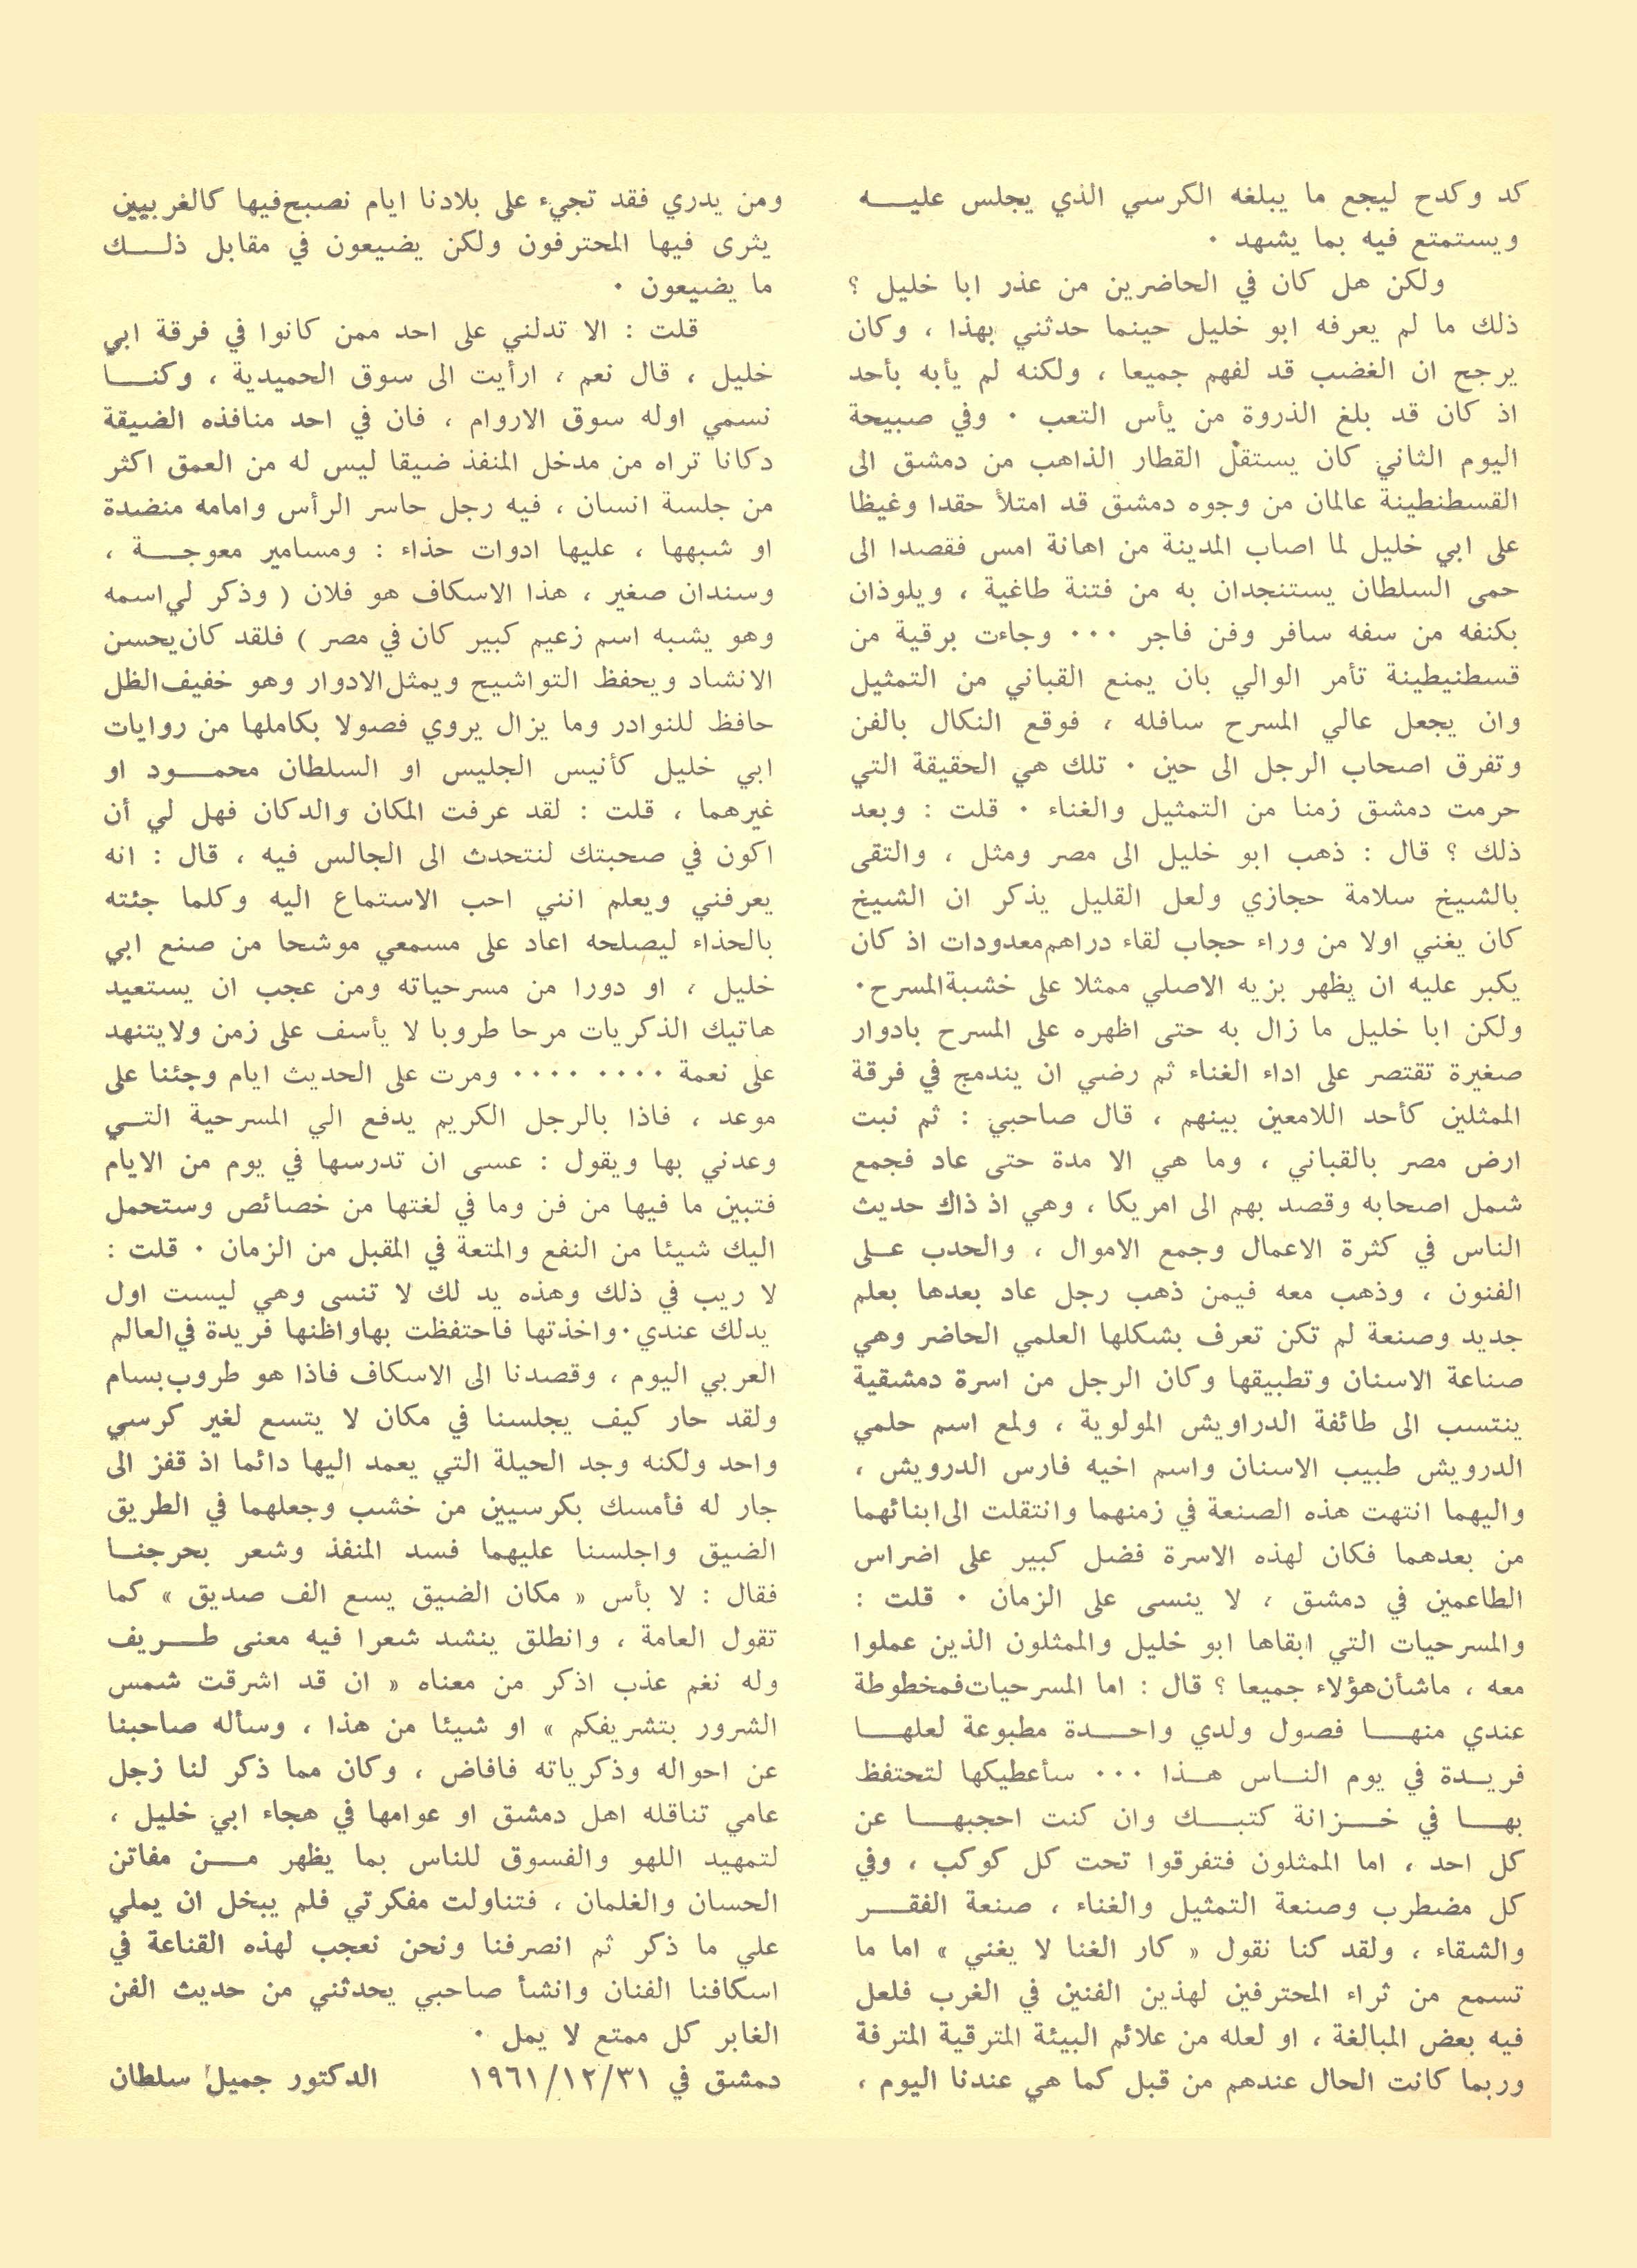 كد وكدح ليجع ما يبلغه الكرسي الذي يجلس عليــه
ويستمتع فيه بما يشهد ٠
ولكن هل كان في الحاضرين من عذر ابا خليل ؟
ذلك ما لم يعرفه ابو خليل حينما حدثني بهذا ، وكان
يرجح ان الغضب قد لفهم جميعا ، ولكنه لم يأبه بأحد
اذ كان قد بلغ الذروة من يأس التعب ٠ وفي صبيحة
اليوم الثاني كان يستقل القطار الذاهب من دمشق الى
القسطنطينة عالمان من وجوه دمشق قد امتلأ حقدا وغيظا
على ابي خليل لما اصاب المدينة من اهانة امس فقصدا الى
حمى السلطان يستنجدان به من فتنة طاغية ، ويلوذان
بكنفه من سفه سافر وفن فاجر ٠٠٠ وجاءت برقية من
قسطنيطينة تأمر الوالي بان يمنع القباني من التمثيل
وان يجعل عالي المسرح سافله ، فوقع النكال بالفن
وتفرق اصحاب الرجل الى حين ٠ تلك هي الحقيقة التي
حرمت دمشق زمنا من التمثيل والغناء ٠ قلت : وبعد
ذلك ؟ قال : ذهب ابو خليل الى مصر ومثل ، والتقى
بالشيخ سلامة حجازي ولعل القليل يذكر ان الشيخ
كان يغني اولا من وراء حجاب لقاء دراهم معدودات اذ كان
يكبر عليه ان يظهر بزيه الاصلي ممثلا على خشبة المسرح٠
ولكن ابا خليل ما زال به حتى اظهره على المسرح بادوار
صغيرة تقتصر على اداء الغناء ثم رضي ان يندمج في فرقة
الممثلين كأحد اللامعين بينهم ، قال صاحبي : ثم نبت
ارض مصر بالقباني ، وما هي الا مدة حتى عاد فجمع
شمل اصحابه وقصد بهم الى امريكا ، وهي اذ ذاك حديث
الناس في كثرة الاعمال وجمع الاموال ، والحدب عــلى
الفنون ، وذهب معه فيمن ذهب رجل عاد بعدها بعلم
جديد وصنعة لم تكن تعرف بشكلها العلمي الحاضر وهي
صناعة الاسنان وتطبيقها وكان الرجل من اسرة دمشقية
ينتسب الى طائفة الدراويش المولوية ، ولمع اسم حلمي
الدرويش طبيب الاسنان واسم اخيه فارس الدرويش ،
واليهما انتهت هذه الصنعة في زمنهما وانتقلت الى ابنائهما
من بعدهما فكان لهذه الاسرة فضل كبير على اضراس
الطاعمين في دمشق ، لا ينسى على الزمان ٠ قلت :
والمسرحيات التي ابقاها ابو خليل والممثلون الذين عملوا
معه ، ماشأن هؤلاء جميعا ؟ قال : اما المسرحيات فمخطوطة
عندي منهــا فصول ولدي واحــدة مطبوعة لعلهــا
فريــدة في يوم النــاس هــذا ٠٠٠ سأعطيكها لتحتفظ
بهــا في خــزانة كتبــك وان كنت احجبهــا عن
كل احد ، اما الممثلون فتفرقوا تحت كل كوكب ، وفي
كل مضطرب وصنعة التمثيل والغناء ، صنعة الفقــر
والشقاء ، ولقد كنا نقول « كار الغنا لا يغني » اما ما
تسمع من ثراء المحترفين لهذين الفنين في الغرب فلعل
فيه بعض المبالغة ، او لعله من علائم البيئة المترقية المترفة
وربما كانت الحال عندهم من قبل كما هي عندنا اليوم ،
ومن يدري فقد تجيء على بلادنا ايام نصبح فيها كالغربيين
يثرى فيها المحترفون ولكن يضيعون في مقابل ذلــك
ما يضيعون ٠
قلت : الا تدلني على احد ممن كانوا في فرقة ابي
خليل ، قال نعم ، ارأيت الى سوق الحميدية ، وكنــا
نسمي اوله سوق الاروام ، فان في احد منافذه الضيقة
دكانا تراه من مدخل المنفذ ضيقا ليس له من العمق اكثر
من جلسة انسان ، فيه رجل حاسر الرأس وامامه منضدة
او شبهها ، عليها ادوات حذاء : ومسامير معوجــة ،
وسندان صغير ، هذا الاسكاف هو فلان ( وذكر لي اسمه
وهو يشبه اسم زعيم كبير كان في مصر ) فلقد كان يحسن
الانشاد ويحفظ التواشيح ويمثل الادوار وهو خفيف الظل
حافظ للنوادر وما يزال يروي فصولا بكاملها من روايات
ابي خليل كأنيس الجليس او السلطان محمــود او
غيرهما ، قلت : لقد عرفت المكان والدكان فهل لي أن
اكون في صحبتك لنتحدث الى الجالس فيه ، قال : انه
يعرفني ويعلم انني احب الاستماع اليه وكلما جئته
بالحذاء ليصلحه اعاد على مسمعي موشحا من صنع ابي
خليل ، او دورا من مسرحياته ومن عجب ان يستعيد
هاتيك الذكريات مرحا طروبا لا يأسف على زمن ولا يتنهد
على نعمة ٠٠٠٠ ٠٠٠٠ ومرت على الحديث ايام وجئنا على
موعد ، فاذا بالرجل الكريم يدفع الي المسرحية التــي
وعدني بها ويقول : عسى ان تدرسها في يوم من الايام
فتبين ما فيها من فن وما في لغتها من خصائص وستحمل
اليك شيئا من النفع والمتعة في المقبل من الزمان ٠ قلت :
لا ريب في ذلك وهذه يد لك لا تنسى وهي ليست اول
يدلك عندي٠ واخذتها فاحتفظت بها واظنها فريدة في العالم
العربي اليوم ، وقصدنا الى الاسكاف فاذا هو طروب بسام
ولقد حار كيف يجلسنا في مكان لا يتسع لغير كرسي
واحد ولكنه وجد الحيلة التي يعمد اليها دائما اذ قفز الى
جار له فأمسك بكرسيين من خشب وجعلهما في الطريق
الضيق واجلسنا عليهما فسد المنفذ وشعر بحرجنــا
فقال : لا بأس « مكان الضيق يسع الف صديق » كما
تقول العامة ، وانطلق ينشد شعرا فيه معنى طــريف
وله نغم عذب اذكر من معناه « ان قد اشرقت شمس
الشرور بتشريفكم » او شيئا من هذا ، وسأله صاحبنا
عن احواله وذكرياته فافاض ، وكان مما ذكر لنا زجل
عامي تناقله اهل دمشق او عوامها في هجاء ابي خليل ،
لتمهيد اللهو والفسوق للناس بما يظهر مــن مفاتن
الحسان والغلمان ، فتناولت مفكرتي فلم يبخل ان يملي
علي ما ذكر ثم انصرفنا ونحن نعجب لهذه القناعة في
اسكافنا الفنان وانشأ صاحبي يحدثني من حديث الفن
الغابر كل ممتع لا يمل ٠
دمشق في ١٩٦١/١٢/٣١ الدكتور جميل سلطان